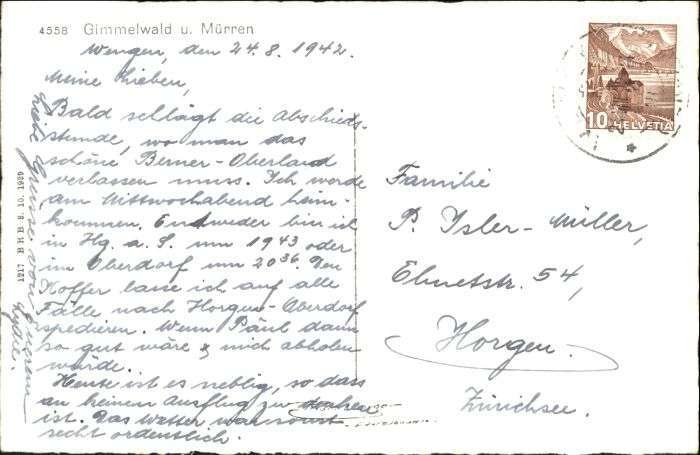 4558 Gimmelwald u. Mürren
Wengen, den 24.8.1942.
Meine Lieben,
Bald schlägt die Abschieds-
stunde, wo man das
schöne Berner-Oberland
verlassen muss. Ich werde
am Mittwochabend heim-
kommen. Entweder bin ich
in Hg. a. S. um 1943 oder
im Oberdorf um 2036. Den
Koffer lasse ich auf alle
Fälle nach Horgen-Oberdorf
spedieren. Wenn Päul dann
so gut wäre & mich abholen
würde.
Heute ist es neblig, so dass
an keinen Ausflug zu denken
ist. Das Wetter war sonst
recht ordentlich.
Liebe Grüsse von Euerem
Lydia.
1217 H H H H 9. 10. 1939
10 HELVETIA
Familie
P. Isler-Müller,
Ebnetstr. 54,
Horgen.
Zürichsee.